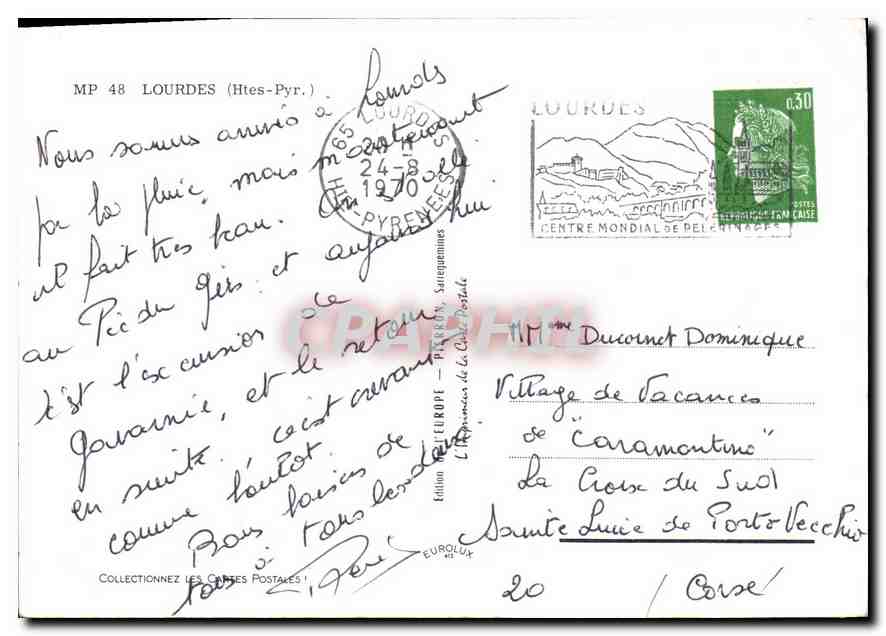 MP 48 LOURDES (Htes-Pyr.)
Nous sommes arrivés à Lourdes
par la pluie, mais maintenant
il fait très beau. On est allé
au Pic du Gers et aujourd'hui
c'est l'excursion de
Gavarnie, et le retour
ensuite, c'est crevant
comme
Bons baisers de
tous à tous les deux
COLLECTIONNEZ LES CARTES POSTALES !
65 LOURDES
24-8
1970
HTES-PYRENEES
LOURDES
CENTRE MONDIAL DE PELERINAGES
0,30
POSTES
REPUBLIQUE FRANÇAISE
CPARHIL
Edition de l'EUROPE — PIERRON, Sarreguemines
L'Imprimeur de la Carte Postale
EUROLUX
MMme Ducornet Dominique
Village de Vacances
de "Caramontino"
La Croix du Sud
Sainte Lucie de Porto Vecchio
20 (Corse)